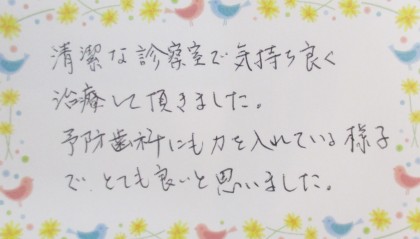 清潔な診察室で気持ち良く
治療して頂きました。
予防歯科にも力を入れている様子
で、とても良いと思いました。